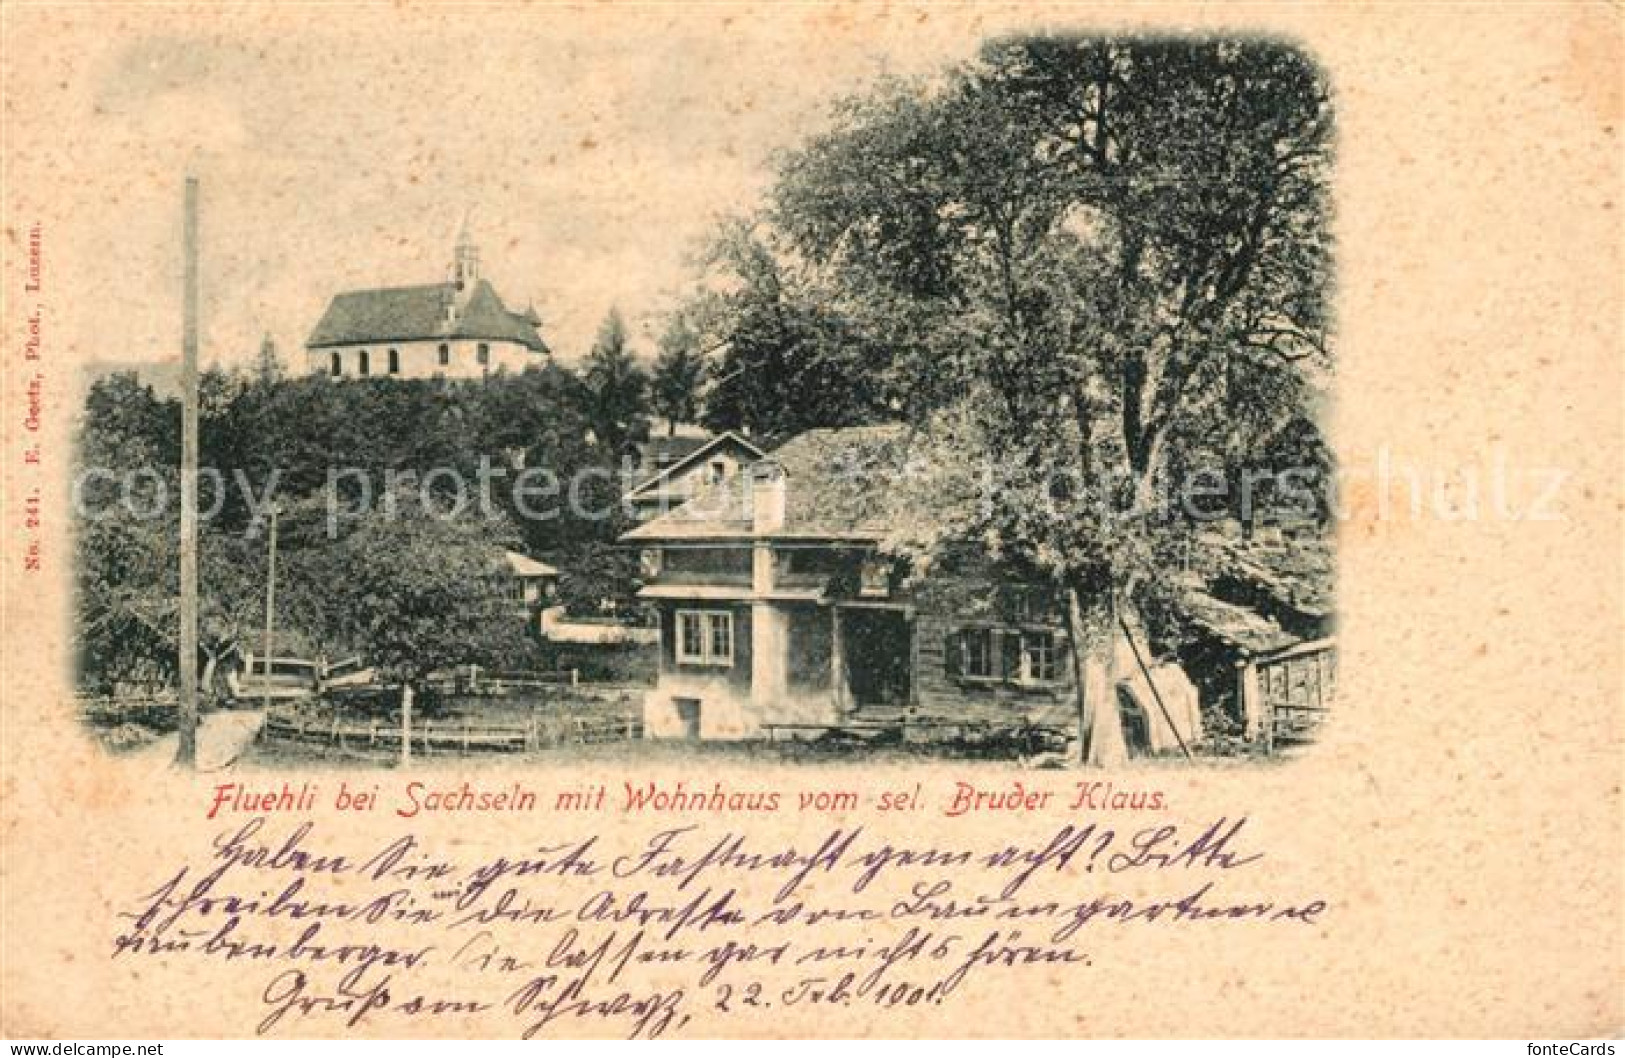 No. 241. E. Goetz, Phot., Luzern.
copy protection - Kopierschutz
Fluehli bei Sachseln mit Wohnhaus vom sel. Bruder Klaus.
Haben Sie gute Fastnacht gemacht? Bitte
schreiben Sie mir die Adresse von Baumgartner u
Traubenberger. Sie lassen gar nichts hören.
Gruß von Schwyz, 22. Feb. 1901.
www.delcampe.net
fonteCards